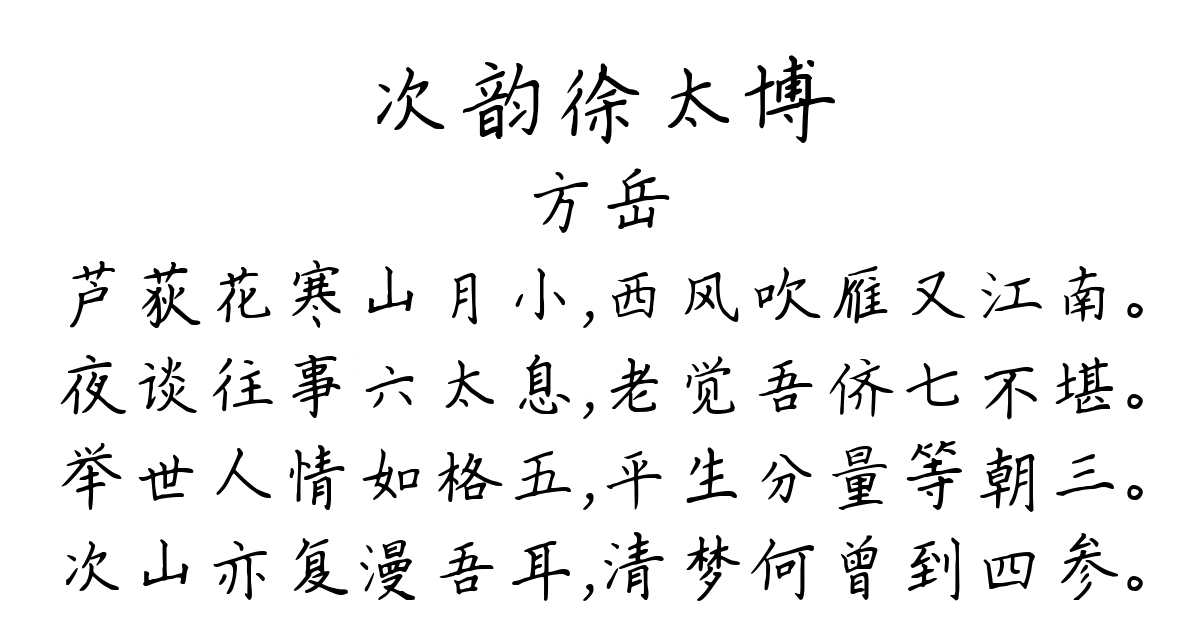 次韵徐太博
方岳
芦荻花寒山月小,西风吹雁又江南。
夜谈往事六太息,老觉吾侪七不堪。
举世人情如格五,平生分量等朝三。
次山亦复漫吾耳,清梦何曾到四参。